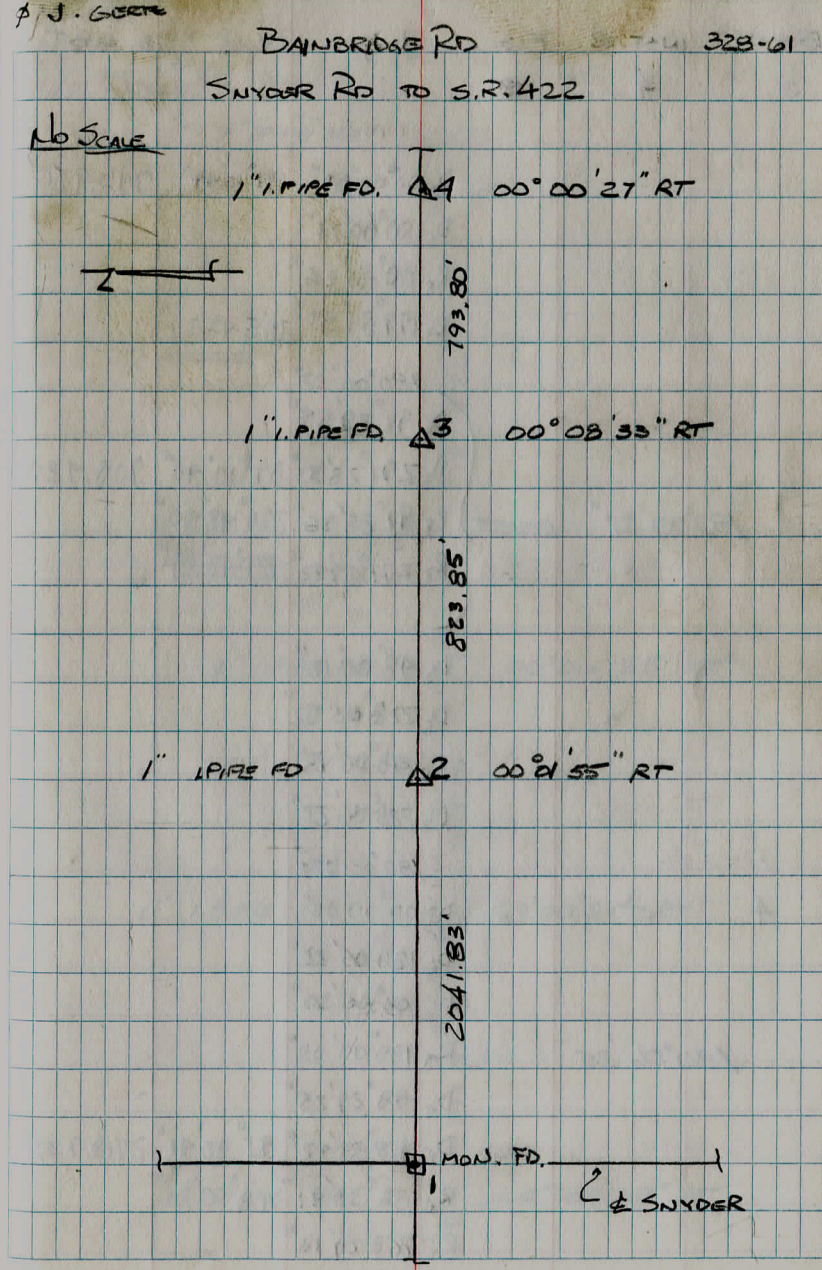 φ J. GERTE
BAINBRIDGE RD 328-61
SNYDER RD TO S.R. 422
NO SCALE
1" I. PIPE FD. 4 00° 00' 27" RT
793.80'
1" I. PIPE FD. 3 00° 08' 33" RT
823.85'
1" I PIPE FD 2 00° 01' 55" RT
2041.83'
MON. FD.
1
℄ SNYDER